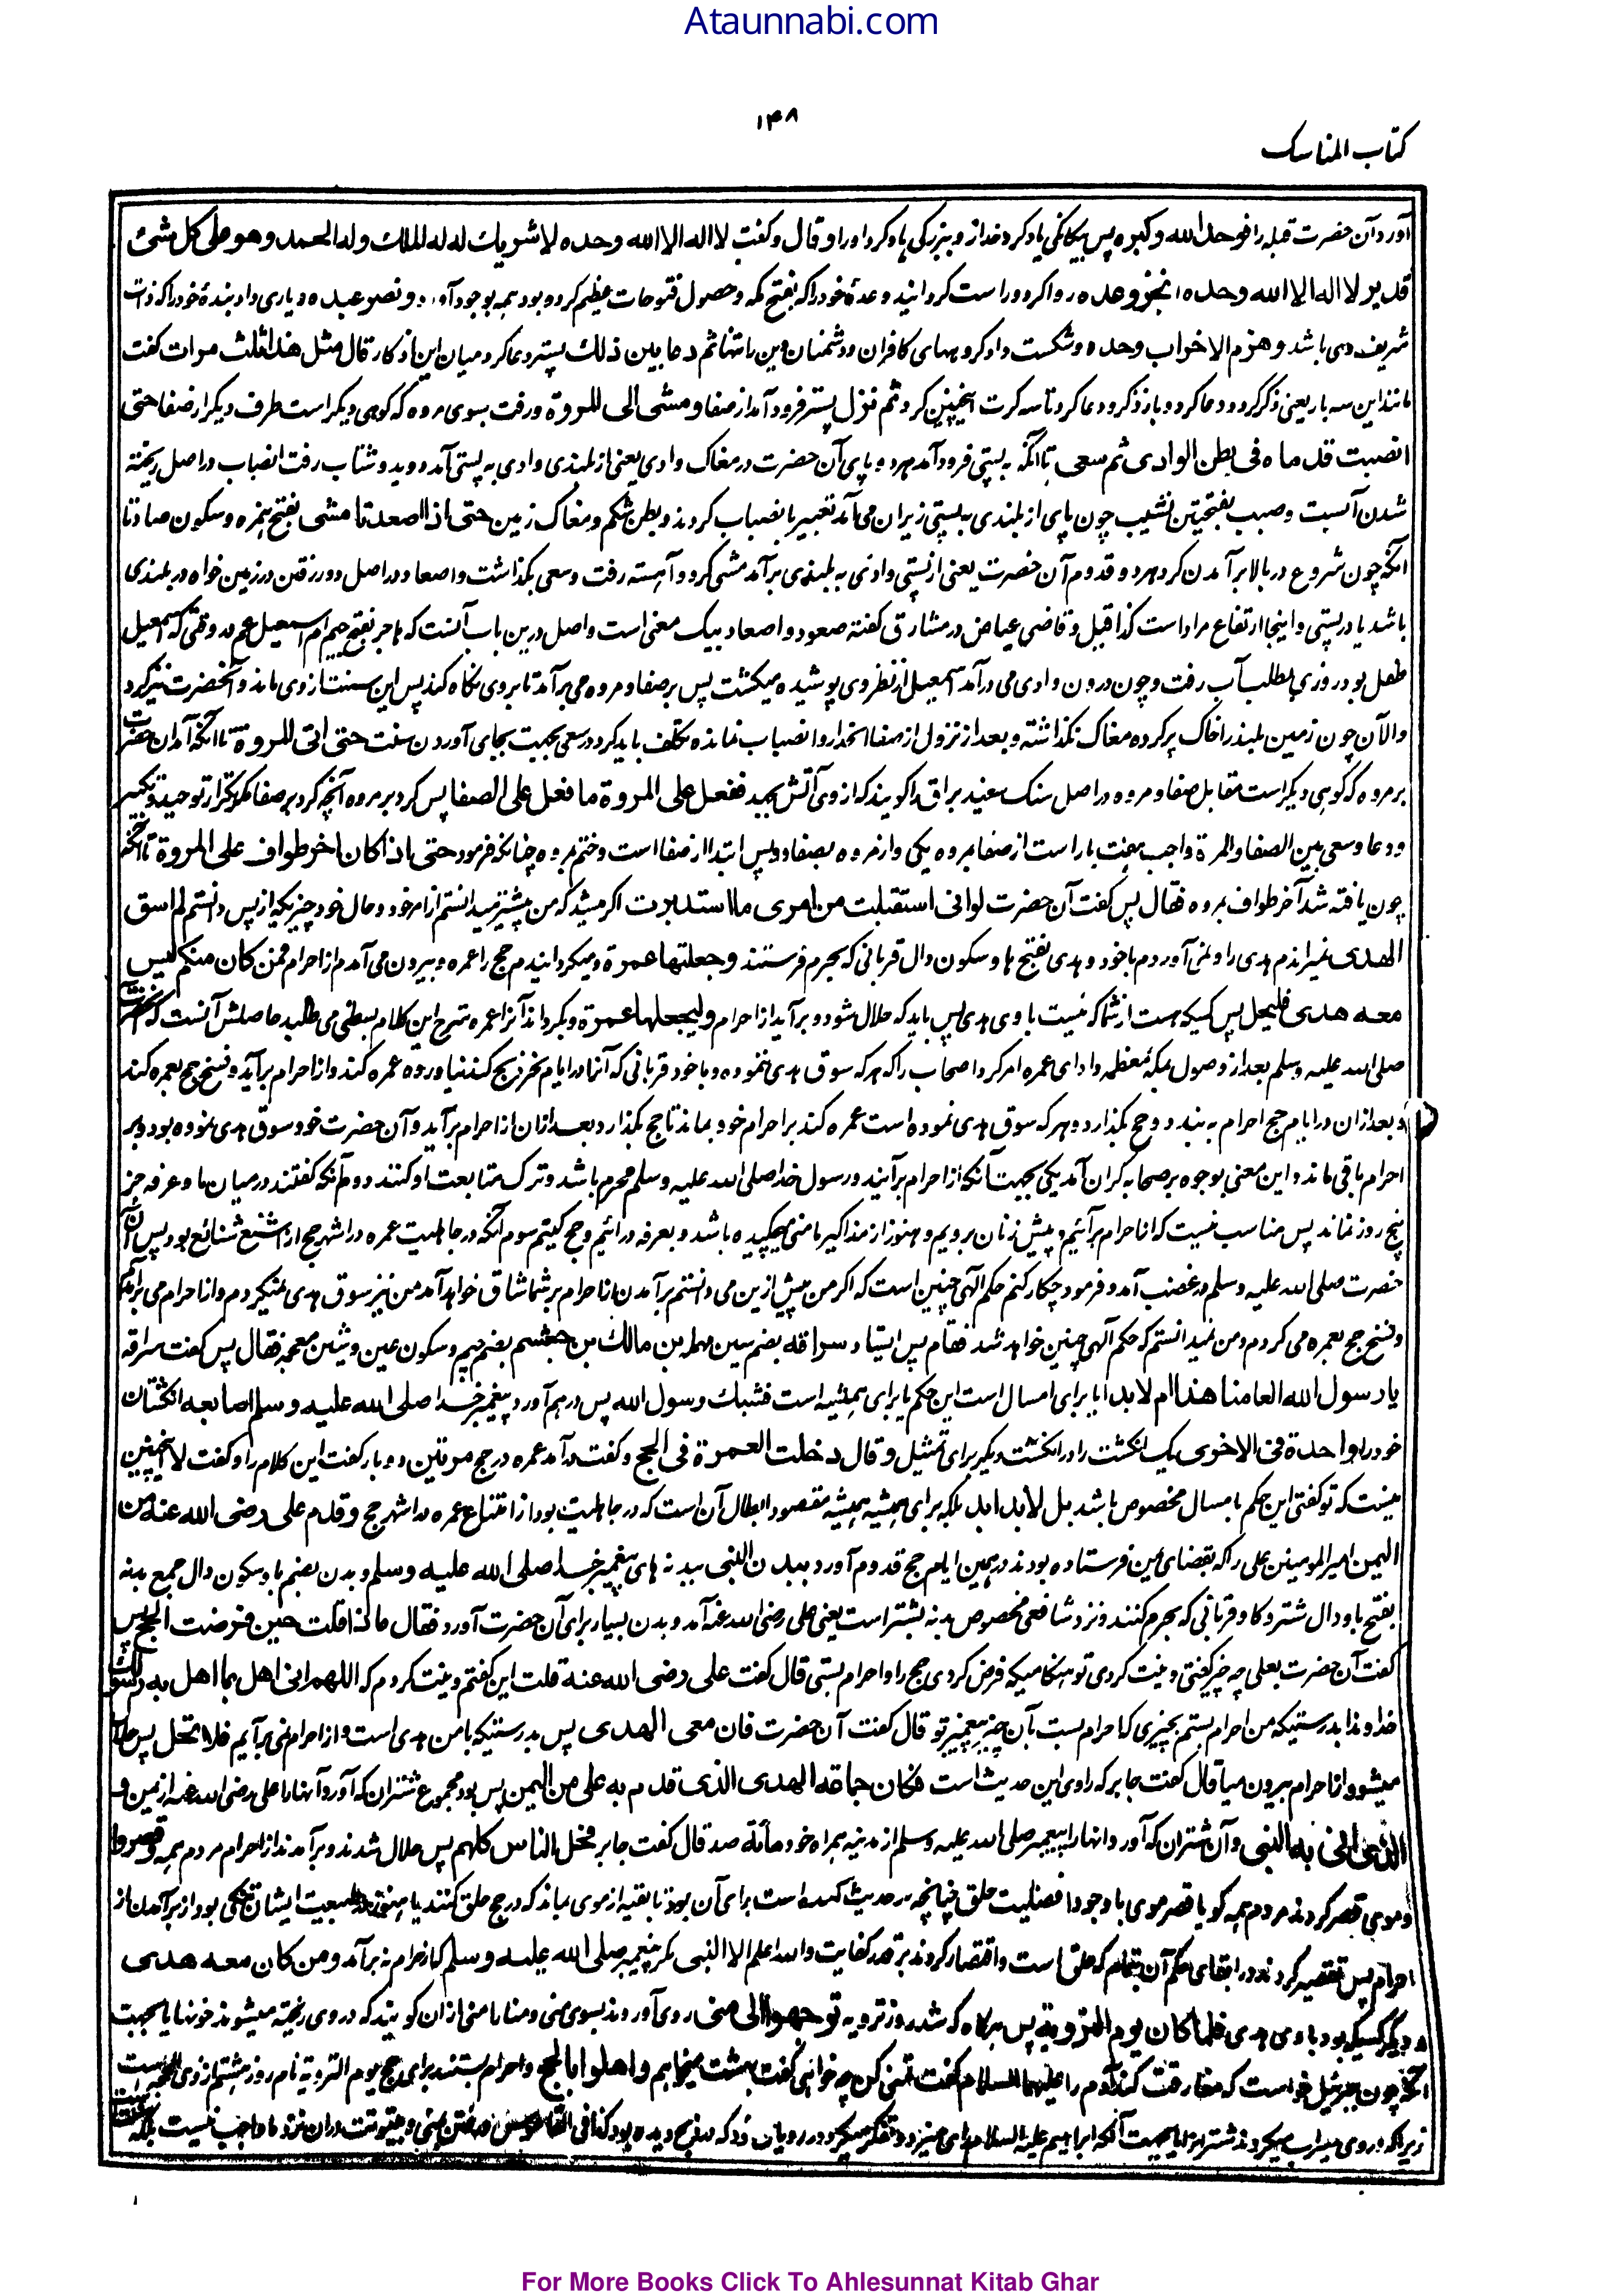 Ataunnabi.com
۱۴۸
کتاب المناسک
آورد آن حضرت قبله را فوحد الله وکبره پس بیگانگی یاد کرد خدا را و بزرگی یاد کرد او را و قال و گفت لا اله الا الله وحده لا شریك له له الملك وله الحمد وهو علی کل شئ
قدیر لا اله الا الله وحده انجز وعده روا کرد و راست گردانید وعدهٔ خود را که بفتح مکه و حصول فتوحات عظیم کرده بود همه بوجود آورد و نصر عبده و یاری داد بندهٔ خود را که ذات
شریف وی باشد وهزم الاحزاب وحده و شکست داد گروههای کافران و دشمنان دین را تنها ثم دعا بین ذلك پستر دعا کرد میان این اذکار قال مثل هذا ثلث مرات گفت
مانند این سه بار یعنی ذکر کرد و دعا کرد و باز ذکر و دعا کرد تا سه کرت اینچنین کرد ثم نزل پستر فرود آمد از صفا ومشی الی المروة و رفت بسوی مروه که کوهی دیگر است طرف دیگر از صفا حتی
انصبت قدماه فی بطن الوادی ثم سعی تا آنکه به پستی فرود آمد هر دو پای آن حضرت در مغاک وادی یعنی از بلندی وادی به پستی آمد دوید و شتاب رفت انصباب در اصل ریخته
شدن آبست و صبب بفتحیتن نشیب چون پای از بلندی به پستی زیران می آمد تعبیر بانصباب کردند و بطن شکم و مغاک زمین حتی اذا اصعدتا مشی بفتح همزه و سکون صاد تا
آنکه چون شروع در بالا برآمدن کرد هر دو قدوم آن حضرت یعنی از پستی وادی به بلندی برآمد مشی کرد و آهسته رفت و سعی بگذاشت و اصعاد در اصل دور رفتن در زمین خواه در بلندی
باشد یا در پستی و اینجا ارتفاع مراد است کذا قیل و قاضی عیاض در مشارق گفته صعود و اصعاد بیک معنی است و اصل درین باب آنست که هاجر بفتح جیم ام اسمعیل عم وقتی که اسمعیل
طفل بود روزی بطلب آب رفت و چون درون وادی می درآمد اسمعیل از نظر وی پوشیده میگشت پس بر صفا و مروه می برآمد تا بروی نگاه کند پس این سنت از وی ماند و آنحضرت نیز کرد
والآن چون زمین بلند را خاک پر کرده مغاک نگذاشته و بعد از نزول از صفا انحدار و انصباب نمانده تکلف باید کرد در سعی بجهت بجای آوردن سنت حتی اتی المروة تا آنکه آمد آن حضرت
بر مروه که کوهی دیگر است مقابل صفا و مروه در اصل سنگ سفید براق را گویند که از وی آتش بجهد ففعل علی المروة ما فعل علی الصفا پس کرد بر مروه آنچه کرد بر صفا از تکرار توحید و تکبیر
و دعا و سعی بین الصفا والمرة واجب هفت بار است از صفا بمروه یکی و از مروه بصفا دو پس ابتدا از صفا است و ختم بمروه چنانکه فرمود حتی اذا کان اخر طواف علی المروة تا آنکه
چون یافته شد آخر طواف بمروه فقال پس گفت آن حضرت لو انی استقبلت من امری ما استدبرت اگر میشد که من پیشتر میدانستم از امر خود و حال خود چیزیکه از پس دانستم لم اسق
الهدی نمیراندم هدی را و نمی آوردم با خود و هدی بفتح ها و سکون دال قربانی که بحرم فرستند وجعلتها عمرة و میگردانیدم حج را عمره و بیرون می آمدم از احرام فمن کان منکم لیس
معه هدی فلیحل پس کسیکه هست از شما که نیست با وی هدی پس باید که حلال شود و برآید از احرام ولیجعلها عمرة و بگرداند آنرا عمره شرح این کلام بسطی می طلبد حاصلش آنست که آنحضرت
صلی الله علیه وسلم بعد از وصول بمکهٔ معظمه و ادای عمره امر کرد اصحاب را که هر که سوق هدی ننموده و با خود قربانی که آنرا در ایام نحر ذبح کنند نیاورده عمره کند و از احرام برآید و فسخ حج بعمره کند
و بعد ازان در ایام حج احرام به بندد و حج بگذارد و هر که سوق هدی نموده است عمره کند بر احرام خود بماند تا حج بگذارد بعد ازان از احرام برآید و آن حضرت خود سوق هدی نموده بود و بر
احرام باقی ماند و این معنی بوجوه بر صحابه گران آمد یکی بجهت آنکه از احرام برآیند و رسول خدا صلی الله علیه وسلم محرم باشد و ترک متابعت او کنند دوم آنکه گفتند در میان ما و عرفه جز
پنج روز نماند پس مناسب نیست که از احرام برآئیم و پیش زنان برویم و هنوز از مذاکیر ما منی میچکیده باشد و بعرفه درآئیم و حج کنیم سوم آنکه در جاهلیت عمره در اشهر حج از اشنع شنائع بود پس آن
حضرت صلی الله علیه وسلم در غضب آمد و فرمود چکار کنم حکم الٓهی چنین است که اگر من پیش ازین می دانستم برآمدن از احرام بر شما شاق خواهد آمد من نیز سوق هدی نمیکردم و از احرام می برآمدم
و فسخ حج بعمره می کردم و من نمیدانستم که حکم الٓهی چنین خواهد شد فقام پس ایستاد سراقة بضم سین مهمله بن مالك بن جعشم بضم جیم و سکون عین و شین معجمه فقال پس گفت سراقه
یا رسول الله العامنا هذا ام لابد ایا برای امسال است این حکم یا برای همیشه است فشبك رسول الله پس درهم آورد پیغمبر خدا صلی الله علیه وسلم اصابعه انگشتان
خود را واحدة فی الاخری یک انگشت را در انگشت دیگر برای تمثیل وقال دخلت العمرة فی الحج و گفت درآمد عمره در حج مرتین دو بار گفت این کلام را و گفت لا اینچنین
نیست که تو گفتی این حکم بامسال مخصوص باشد بل لابد ابد بلکه برای همیشه همیشه مقصود ابطال آن است که در جاهلیت بود از امتناع عمره در اشهر حج وقدم علی رضی الله عنه من
الیمن امیر المومنین علی را که بقضای یمن فرستاده بودند در همین ایام حج قدوم آورد ببدن النبی ببدنه های پیغمبر خدا صلی الله علیه وسلم و بدن بضم با و سکون دال جمع بدنه
بفتح با و دال شتر و گاو قربانی که بحرم کنند و نزد شافعی مخصوص بدنه بشتر است یعنی علی رضی الله عنه آمد و بدن بسیار برای آن حضرت آورد فقال ماذا قلت حین فرضت الحج پس
گفت آن حضرت بعلی چه چیز گفتی و نیت کردی تو هنگامیکه فرض کردی حج را و احرام بستی قال گفت علی رضی الله عنه قلت این گفتم و نیت کردم که اللهم انی اهل بما اهل به رسولك
خداوندا بدرستیکه من احرام بستم بچیزی که احرام بست بآن چیز پیغمبر تو قال گفت آن حضرت فان معی الهدی پس بدرستیکه با من هدی است و از احرام نمی برآیم فلا تحل پس حلال
میشو و از احرام بیرون میا قال گفت جابر که راوی این حدیث است فکان جماعة الهدی الذی قدم به علی من الیمن پس بود مجموع شتران که آورد آنها را علی رضی الله عنه از یمن و
الذی اتی به النبی و آن شتران که آورد آنها را پیغمبر صلی الله علیه وسلم از مدینه همراه خود مأئة صد قال گفت جابر فحل الناس کلهم پس حلال شدند و برآمدند از احرام مردم همه وقصروا
و موی قصر کردند مردم همه گویا قصر موی با وجود افضلیت حلق چنانچه در حدیث آمده است برای آن بود تا بقیه از موی بماند که در حج حلق کنند یا هنوز در طبیعت ایشان تنگی بود از برآمدن از
احرام پس تقصیر کردند در ابقای حکم آن بتمام که حلق است و اقتصار کردند بر قدر کفایت والله اعلم الا النبی مگر پیغمبر صلی الله علیه وسلم که از احرام نه برآمد ومن کان معه هدی
و دیگر کسیکه بود با وی هدی فلما کان یوم الترویة پس هرگاه که شد روز ترویه توجهوا الی منی روی آوردند بسوی منی و منا را منی ازان گویند که در وی ریخته میشوند خونها یا بجهت
آنکه چون جبرئیل خواست که مفارقت کند آدم را علیهما السلام گفت تمنی کن چه خواهی گفت بهشت میخواهم واهلوا بالحج و احرام بستند برای حج یوم الترویه نام روز هشتم از ذی الحجه است
زیرا که در وی سیراب میکردند شتر را یا بجهت آنکه ابراهیم علیه السلام در وی تفکر میکرد در رویای خود که در ذبح دیده بود کذا فی القاموس و رفتن بمنی و بیتوتت دران نزد ما واجب نیست بلکه سنت است
For More Books Click To Ahlesunnat Kitab Ghar